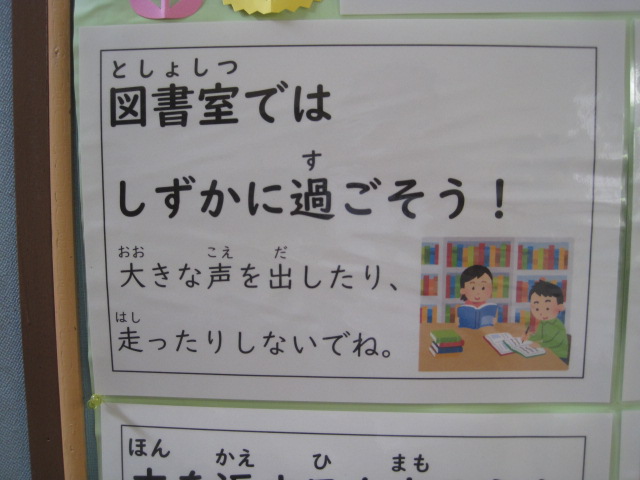 としょしつ
図書室では
す
しずかに過ごそう！
おお こえ だ
大きな声を出したり、
はし
走ったりしないでね。
ほん かえ ひ まも